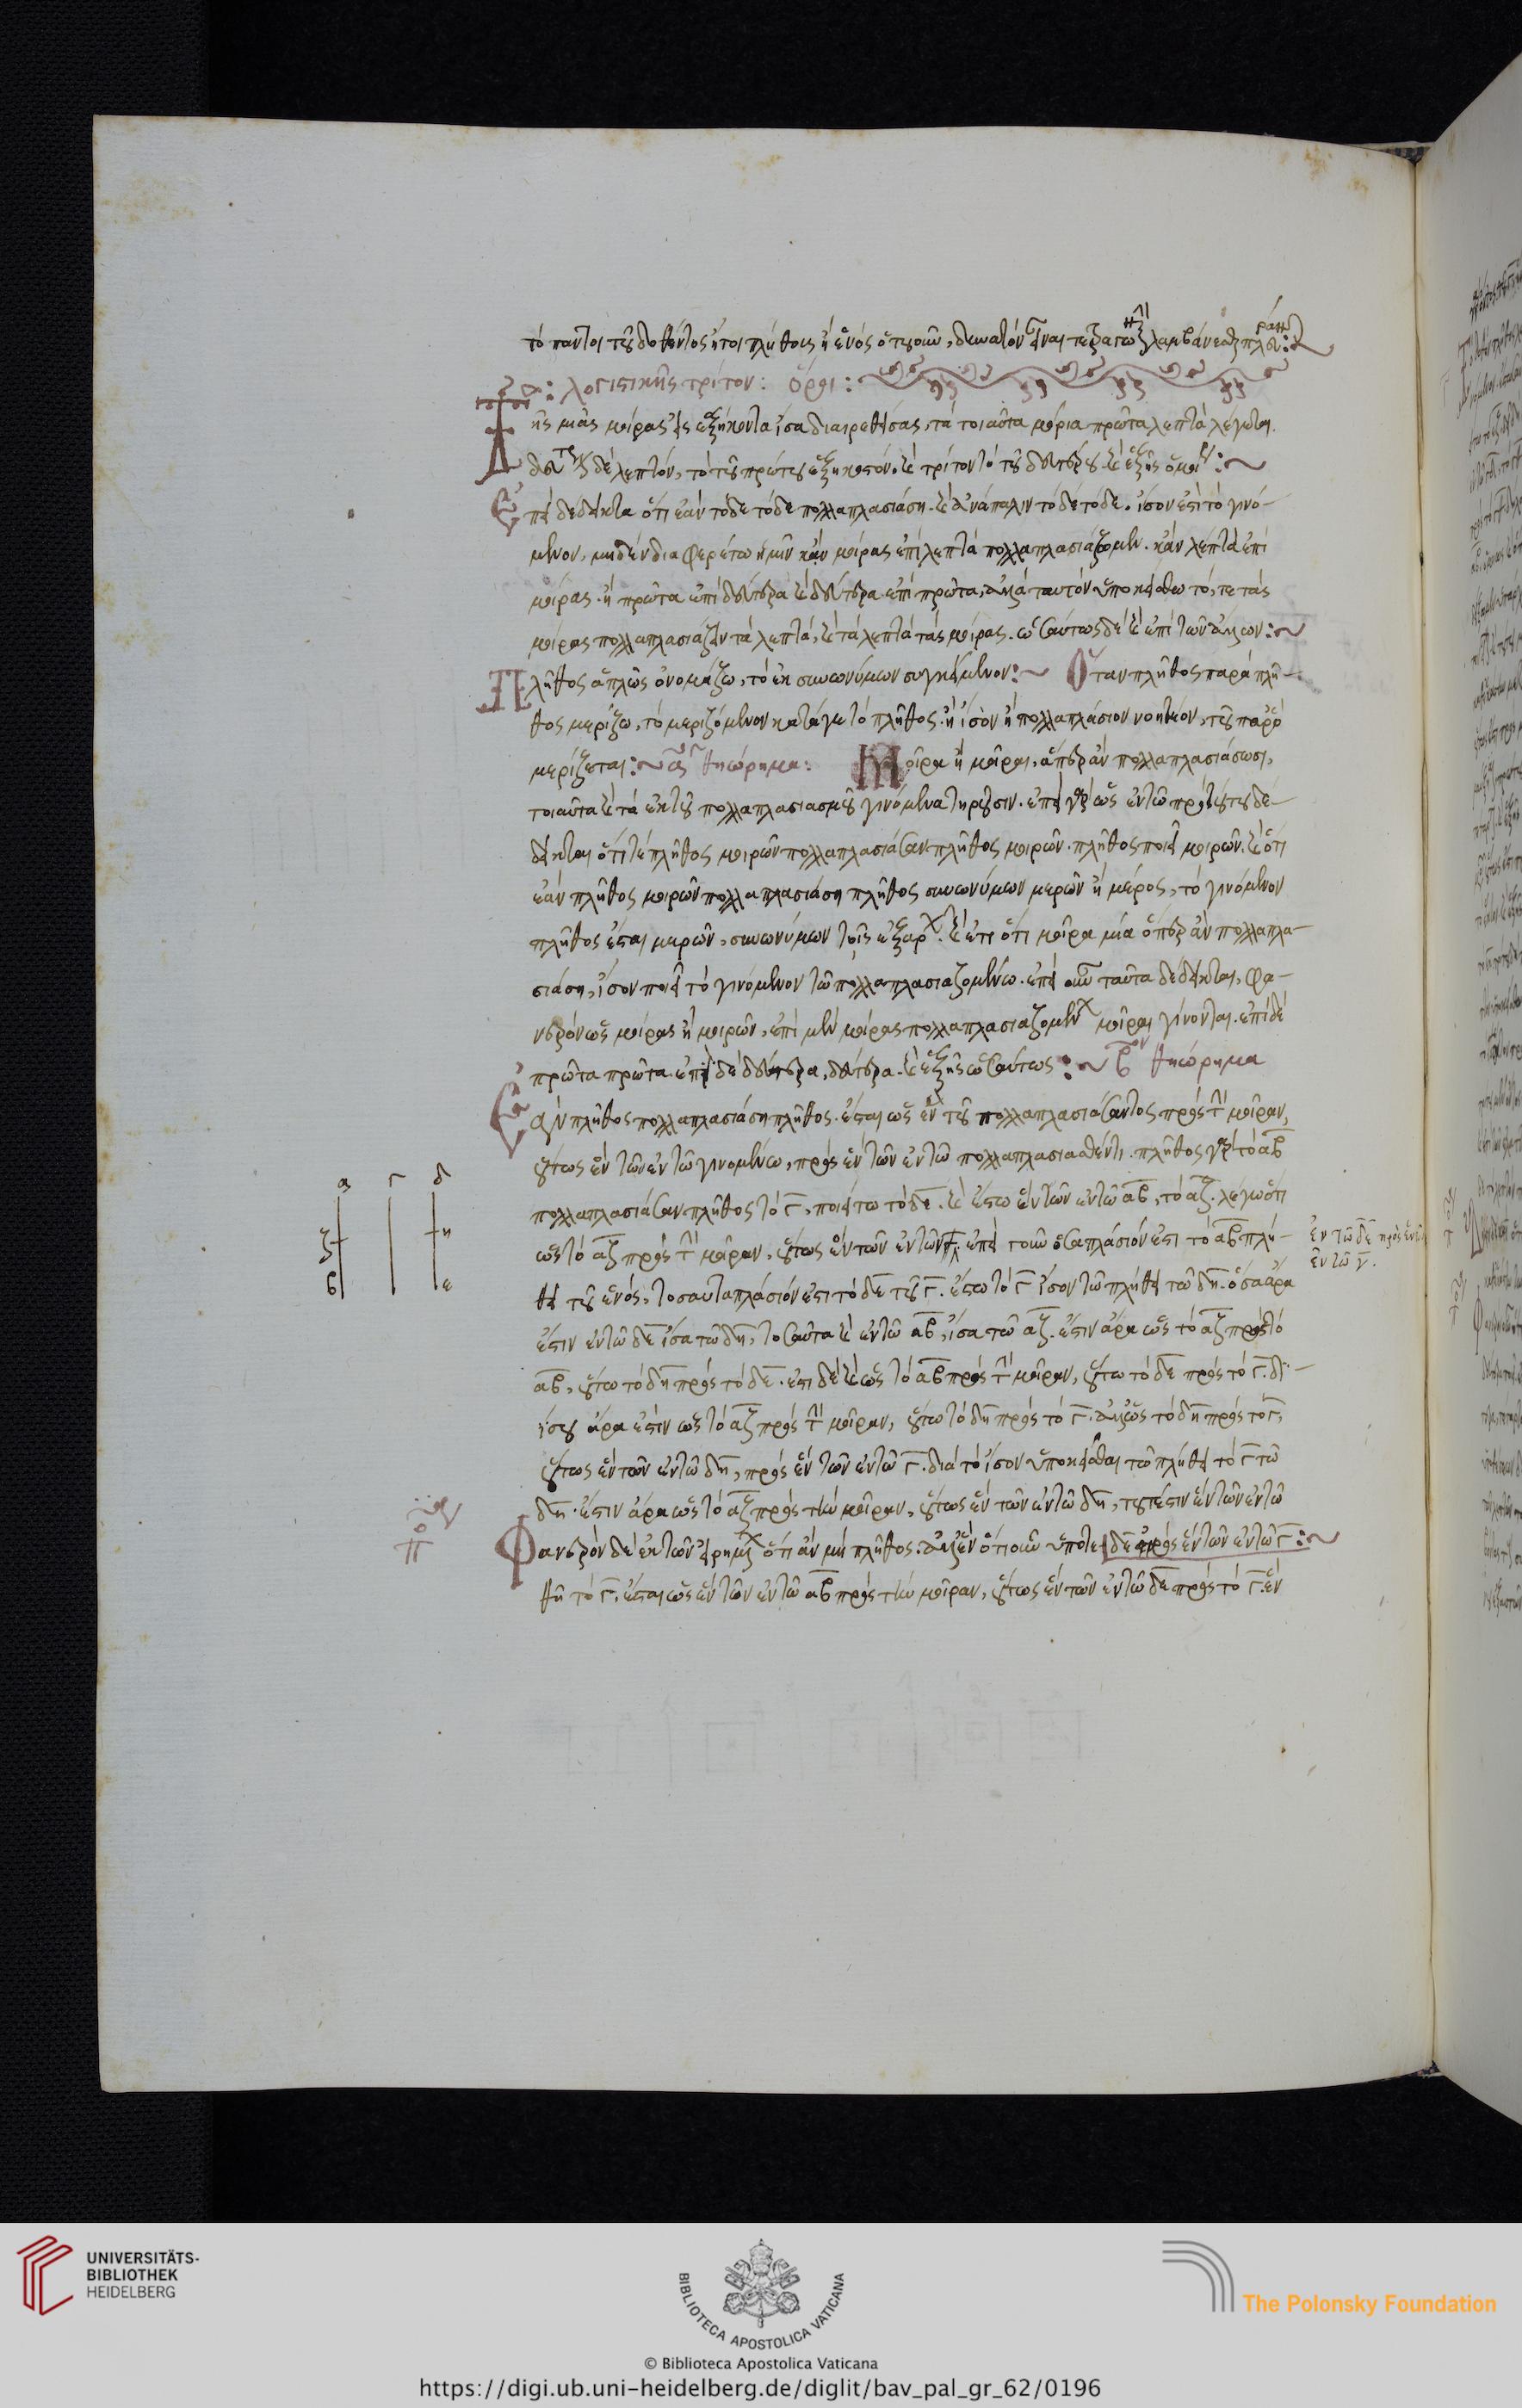 τὸ παντὸς τοῦ δοθέντος ἤτοι πλήθους ἢ ἑνὸς ὁτουοῦν, δυνατὸν εἶναι λαμβάνεσθαι
λογιστικῆς τρίτον: ὅροι:
Τῆς μιᾶς μοίρας εἰς ἑξήκοντα ἴσα διαιρεθείσας, τὰ τοιαῦτα μόρια πρῶτα λεπτὰ λέγεται.
Δεύτερον δὲ λεπτόν, τὸ τοῦ πρώτου ἑξηκοστόν. καὶ τρίτον τὸ τοῦ δευτέρου. καὶ ἑξῆς ὁμοίως:~
Ἐπεὶ δέδεικται ὅτι ἐὰν τόδε τόδε πολλαπλασιάσῃ. καὶ ἀνάπαλιν τόδε τόδε. ἴσον ἐστὶ τὸ γινό-
μενον, μηδὲν διαφερέτω ἡμῖν κἂν μοίρας ἐπὶ λεπτὰ πολλαπλασιάζομεν. κἂν λεπτὰ ἐπὶ
μοίρας. ἢ πρῶτα ἐπὶ δεύτερα καὶ δεύτερα ἐπὶ πρῶτα, ἀλλὰ ταυτὸν ὑποκείσθω τό, τε τὰς
μοίρας πολλαπλασιάζειν τὰ λεπτά, καὶ τὰ λεπτὰ τὰς μοίρας. ὡσαύτως δὲ καὶ ἐπὶ τῶν ἄλλων:~
Πλῆθος ἁπλῶς ὀνομάζω, τὸ ἐκ συνωνύμων συγκείμενον:~ Ὅταν πλῆθος παρὰ πλῆ-
θος μερίζω, τὸ μεριζόμενον κατάγω τὸ πλῆθος. ἢ ἴσον ἢ πολλαπλάσιον νοητέον, τοῦ παρ' ὃ
μερίζεται:~ αον θεώρημα: Μοῖρα ἢ μοῖραι, ἅπερ ἂν πολλαπλασιάσωσι,
τοιαῦτα καὶ τὰ ἐκ τοῦ πολλαπλασιασμοῦ γινόμενα τηροῦσιν. ἐπεὶ γὰρ ὡς ἐν τῷ πρὸ τούτου δέ-
δεικται ὅτι τε πλῆθος μοιρῶν πολλαπλασιάσαν πλῆθος μοιρῶν. πλῆθος ποιεῖ μοιρῶν. καὶ ὅτι
ἐὰν πλῆθος μοιρῶν πολλαπλασιάσῃ πλῆθος συνωνύμων μερῶν ἢ μέρος, τὸ γινόμενον
πλῆθος ἔσται μερῶν, συνωνύμων τοῖς ἐξαρχῆς. καὶ ἔτι ὅτι μοῖρα μία ὅπερ ἂν πολλαπλα-
σιάσῃ, ἴσον ποιεῖ τὸ γινόμενον τῷ πολλαπλασιαζομένῳ. ἐπεὶ οὖν ταῦτα δέδεικται, φα-
νερὸν ὡς μοίρας ἢ μοιρῶν, ἐπὶ μὲν μοίρας πολλαπλασιαζομένων μοῖραι γίνονται. ἐπὶ δὲ
πρῶτα πρῶτα. ἐπὶ δὲ δεύτερα, δεύτερα. καὶ ἑξῆς ὡσαύτως:~ βον θεώρημα
Ἐὰν πλῆθος πολλαπλασιάσῃ πλῆθος. ἔσται ὡς ἓν τοῦ πολλαπλασιάσαντος πρὸς τὴν μοῖραν,
οὕτως ἓν τῶν ἐν τῷ γινομένῳ, πρὸς ἓν τῶν ἐν τῷ πολλαπλασιασθέντι. πλῆθος γὰρ τὸ αβ
πολλαπλασιάσαν πλῆθος τὸ γ, ποιείτω τὸ δε. καὶ ἔστω ἓν τῶν ἐν τῷ αβ, τὸ αζ. λέγω ὅτι
ὡς τὸ αζ πρὸς τὴν μοῖραν, οὕτως ἓν τῶν ἐν τῷ ἐπεὶ τοίνυν ὁσαπλάσιόν ἐστι τὸ αβ πλή-
θει τοῦ ἑνός, τοσαυταπλάσιόν ἐστι τὸ δε τοῦ γ. ἔστω τὸ γ ἴσον τῷ πλήθει τῷ δη. ὅσα ἄρα
ἐστὶν ἐν τῷ δε ἴσα τῷ δη, τοσαῦτα καὶ ἐν τῷ αβ, ἴσα τῷ αζ. ἔστιν ἄρα ὡς τὸ αζ πρὸς τὸ
αβ, οὕτω τὸ δη πρὸς τὸ δε. ἔτι δὲ καὶ ὡς τὸ αβ πρὸς τὴν μοῖραν, οὕτω τὸ δε πρὸς τὸ γ. δι-
ίσου ἄρα ἐστὶν ὡς τὸ αζ πρὸς τὴν μοῖραν, οὕτω τὸ δη πρὸς τὸ γ. ἀλλ' ὡς τὸ δη πρὸς τὸ γ,
οὕτως ἓν τῶν ἐν τῷ δη, πρὸς ἓν τῶν ἐν τῷ γ. διὰ τὸ ἴσον ὑποκεῖσθαι τῷ πλήθει τὸ γ τῷ
δη. ἔστιν ἄρα ὡς τὸ αζ πρὸς τὴν μοῖραν, οὕτως ἓν τῶν ἐν τῷ δη, τουτέστιν ἓν τῶν ἐν τῷ
δε πρὸς ἓν τῶν ἐν τῷ γ:~
Φανερὸν δὲ ἐκ τῶν εἰρημένων ὅτι ἂν μὴ πλῆθος. ἀλλ' ἓν ὁτιοῦν ὑποτε-
θῇ τὸ γ. ἔσται ὡς ἓν τῶν ἐν τῷ αβ πρὸς τὴν μοῖραν, οὕτως ἓν τῶν ἐν τῷ δε πρὸς τὸ γ. ἓν
ἐν τῷ δε πρὸς ἓν
ἐν τῷ γ.
α γ δ
ζ η
β ε
UNIVERSITÄTS-
BIBLIOTHEK
HEIDELBERG
BIBLIOTECA APOSTOLICA VATICANA
The Polonsky Foundation
© Biblioteca Apostolica Vaticana
https://digi.ub.uni-heidelberg.de/diglit/bav_pal_gr_62/0196